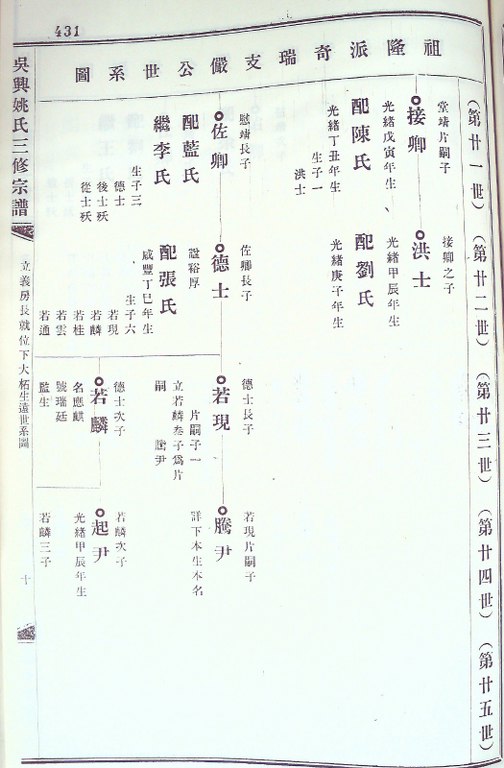 431
祖隆派奇瑞支儼公世系圖
(第廿一世)
(第廿二世)
(第廿三世)
(第廿四世)
(第廿五世)
堂靖片嗣子
接卿
光緒戊寅年生
配陳氏
光緒丁丑年生
生子一
洪士
接卿之子
洪士
光緒甲辰年生
配劉氏
光緒庚子年生
慰靖長子
佐卿
配藍氏
繼李氏
生子三
德士
後士殀
從士殀
佐卿長子
德士
諡裕厚
配張氏
咸豐丁巳年生
生子六
若現
若麟
若桂
若雲
若通
德士長子
若現
片嗣子一
立若麟叁子為片
嗣 騰尹
若現片嗣子
騰尹
詳下本生本名
德士次子
若麟
名應麒
號瑞廷
監生
若麟次子
起尹
光緒甲辰年生
若麟三子
吳興姚氏三修宗譜
立義房長就位下大柘生遠世系圖
十